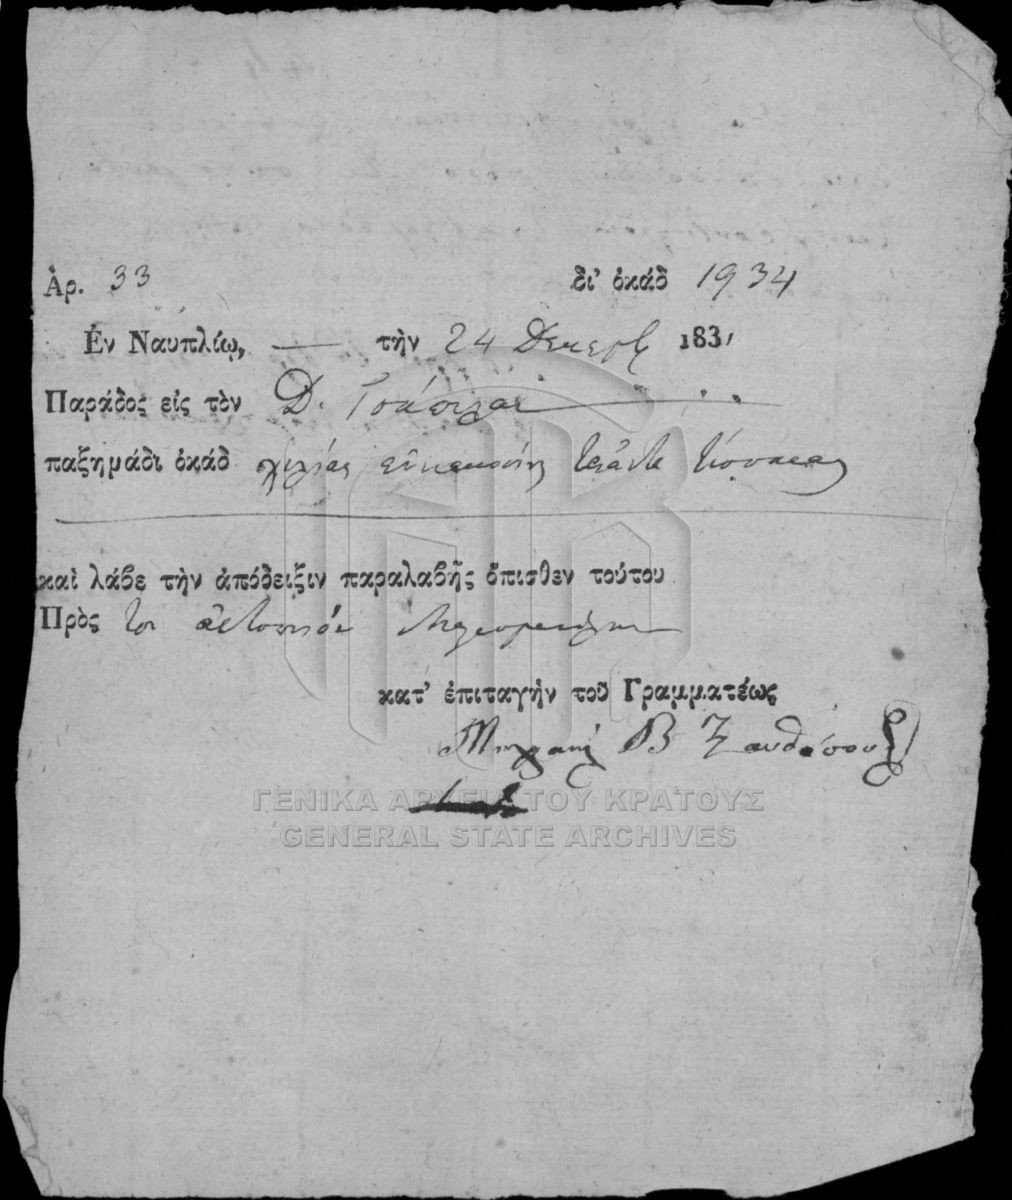 Ἀρ. 33 δι' ὀκάδ 1934
Ἐν Ναυπλίῳ, — τὴν 24 Δεκεμβ 1831
Παράδος εἰς τὸν Δ. Τσάπελα
παξημάδι ὀκάδ χιλίας εννεακοσίας τριάντα τέσσαρας
καὶ λάβε τὴν ἀπόδειξιν παραλαβῆς ὄπισθεν τούτου
Πρὸς τον αρτοποιόν
κατ' ἐπιταγὴν τοῦ Γραμματέως
Β Ξανθόπουλος
ΓΕΝΙΚΑ ΑΡΧΕΙΑ ΤΟΥ ΚΡΑΤΟΥΣ
GENERAL STATE ARCHIVES